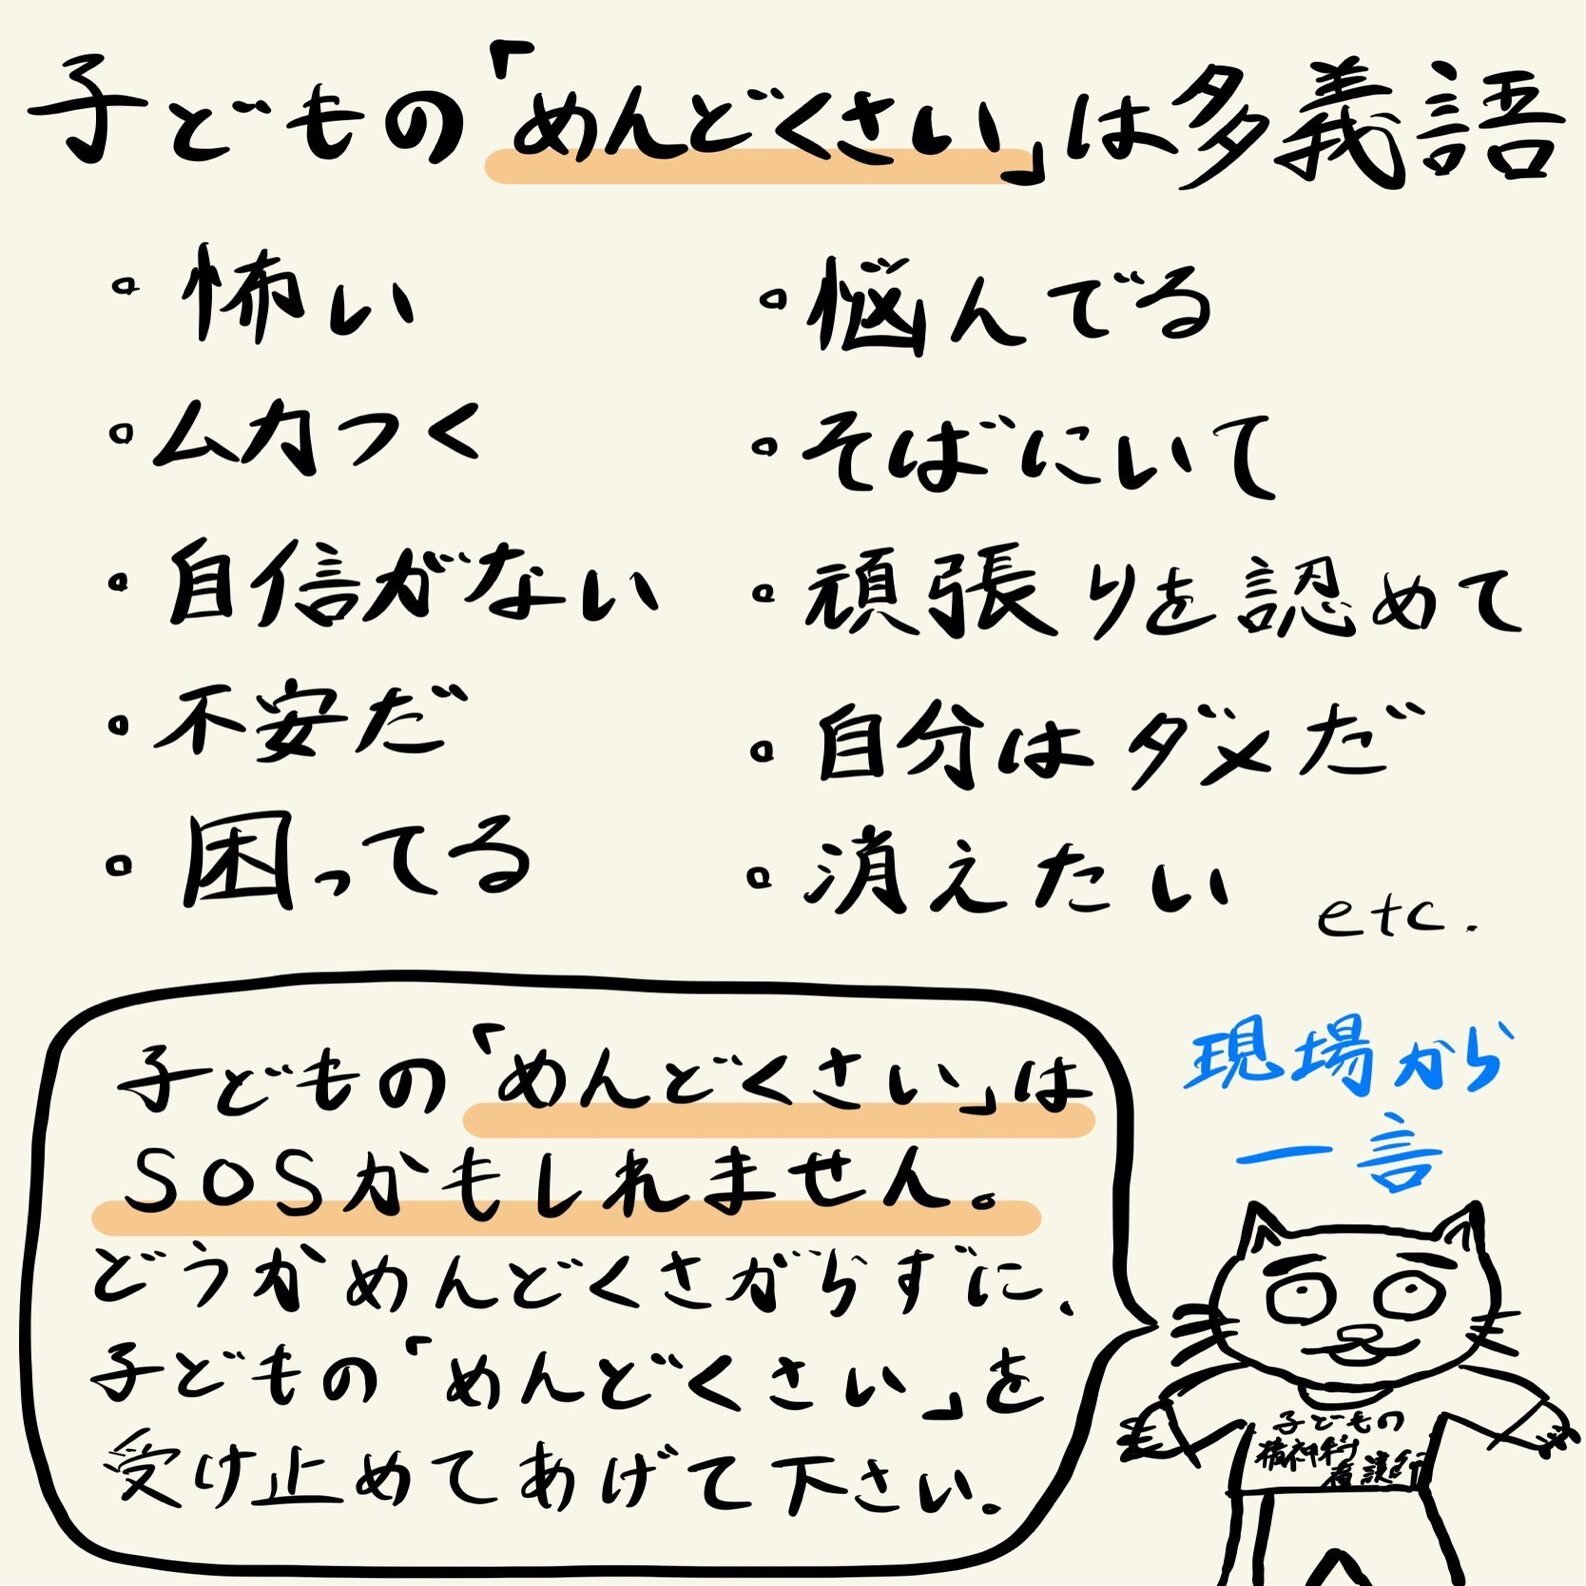 子どもの「めんどくさい」は多義語
・怖い
・ムカつく
・自信がない
・不安だ
・困ってる
・悩んでる
・そばにいて
・頑張りを認めて
・自分はダメだ
・消えたい
etc.
子どもの「めんどくさい」は
SOSかもしれません。
どうかめんどくさがらずに、
子どもの「めんどくさい」を
受け止めてあげて下さい。
現場から
一言
子どもの
精神科
看護師